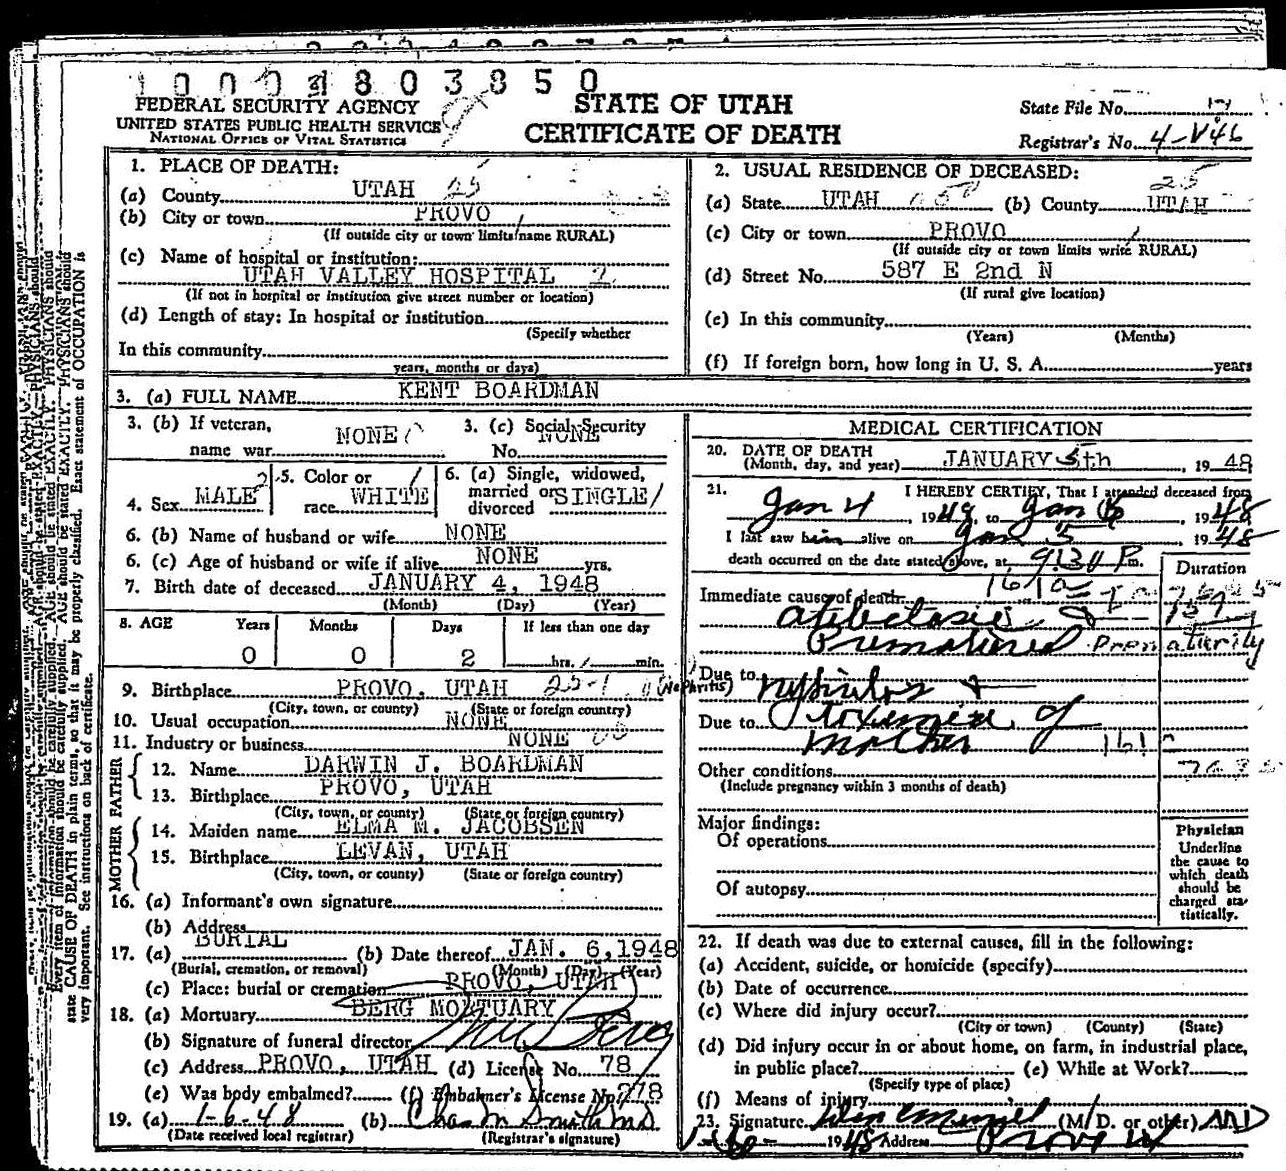 10001803850
FEDERAL SECURITY AGENCY
UNITED STATES PUBLIC HEALTH SERVICE
NATIONAL OFFICE OF VITAL STATISTICS
STATE OF UTAH
CERTIFICATE OF DEATH
State File No.
Registrar's No. 4-V46
1. PLACE OF DEATH:
(a) County UTAH 25
(b) City or town PROVO
(If outside city or town limits name RURAL)
(c) Name of hospital or institution:
UTAH VALLEY HOSPITAL 2
(If not in hospital or institution give street number or location)
(d) Length of stay: In hospital or institution
(Specify whether
In this community
years, months or days)
2. USUAL RESIDENCE OF DECEASED:
25
(a) State UTAH (b) County UTAH
(c) City or town PROVO
(If outside city or town limits write RURAL)
(d) Street No. 587 E 2nd N
(If rural give location)
(e) In this community
(Years) (Months)
(f) If foreign born, how long in U. S. A. years
3. (a) FULL NAME KENT BOARDMAN
3. (b) If veteran, name war NONE
3. (c) Social Security No. NONE
4. Sex MALE
5. Color or race WHITE
6. (a) Single, widowed, married or divorced SINGLE
6. (b) Name of husband or wife NONE
6. (c) Age of husband or wife if alive NONE yrs.
7. Birth date of deceased JANUARY 4, 1948
(Month) (Day) (Year)
8. AGE Years Months Days If less than one day
0 0 2 hrs. min.
9. Birthplace PROVO, UTAH 25-1
(City, town, or county) (State or foreign country)
10. Usual occupation NONE
11. Industry or business NONE
FATHER
12. Name DARWIN J. BOARDMAN
13. Birthplace PROVO, UTAH
(City, town, or county) (State or foreign country)
MOTHER
14. Maiden name ELMA M. JACOBSEN
15. Birthplace LEVAN, UTAH
(City, town, or county) (State or foreign country)
16. (a) Informant's own signature
(b) Address
17. (a) BURIAL (b) Date thereof JAN. 6, 1948
(Burial, cremation, or removal) (Month) (Day) (Year)
(c) Place: burial or cremation PROVO, UTAH
18. (a) Mortuary BERG MORTUARY
(b) Signature of funeral director
(c) Address PROVO, UTAH (d) License No. 78
(e) Was body embalmed? (f) Embalmer's License No. 278
19. (a) 1-6-48 (b) Chas M Smith MD
(Date received local registrar) (Registrar's signature)
MEDICAL CERTIFICATION
20. DATE OF DEATH
(Month, day, and year) JANUARY 5th, 19 48
21. I HEREBY CERTIFY, That I attended deceased from
Jan 4, 1948, to Jan 5, 1948
I last saw him alive on Jan 5 1948
death occurred on the date stated above, at 9:30 P m.
Duration
Immediate cause of death
atelectasis &
Prematured Prematurity
Due to (Nephritis) nephritis &
Due to toxemia of
mother
Other conditions
(Include pregnancy within 3 months of death)
Major findings:
Of operations
Of autopsy
Physician
Underline
the cause to
which death
should be
charged sta-
tistically.
22. If death was due to external causes, fill in the following:
(a) Accident, suicide, or homicide (specify)
(b) Date of occurrence
(c) Where did injury occur?
(City or town) (County) (State)
(d) Did injury occur in or about home, on farm, in industrial place,
in public place? (e) While at Work?
(Specify type of place)
(f) Means of injury
23. Signature (M/D. or other) MD
1-6- 1948 Address Provo Ut
Every item of information should be carefully supplied. AGE should be stated EXACTLY. PHYSICIANS should
state CAUSE OF DEATH in plain terms, so that it may be properly classified. Exact statement of OCCUPATION is
very important. See instructions on back of certificate.